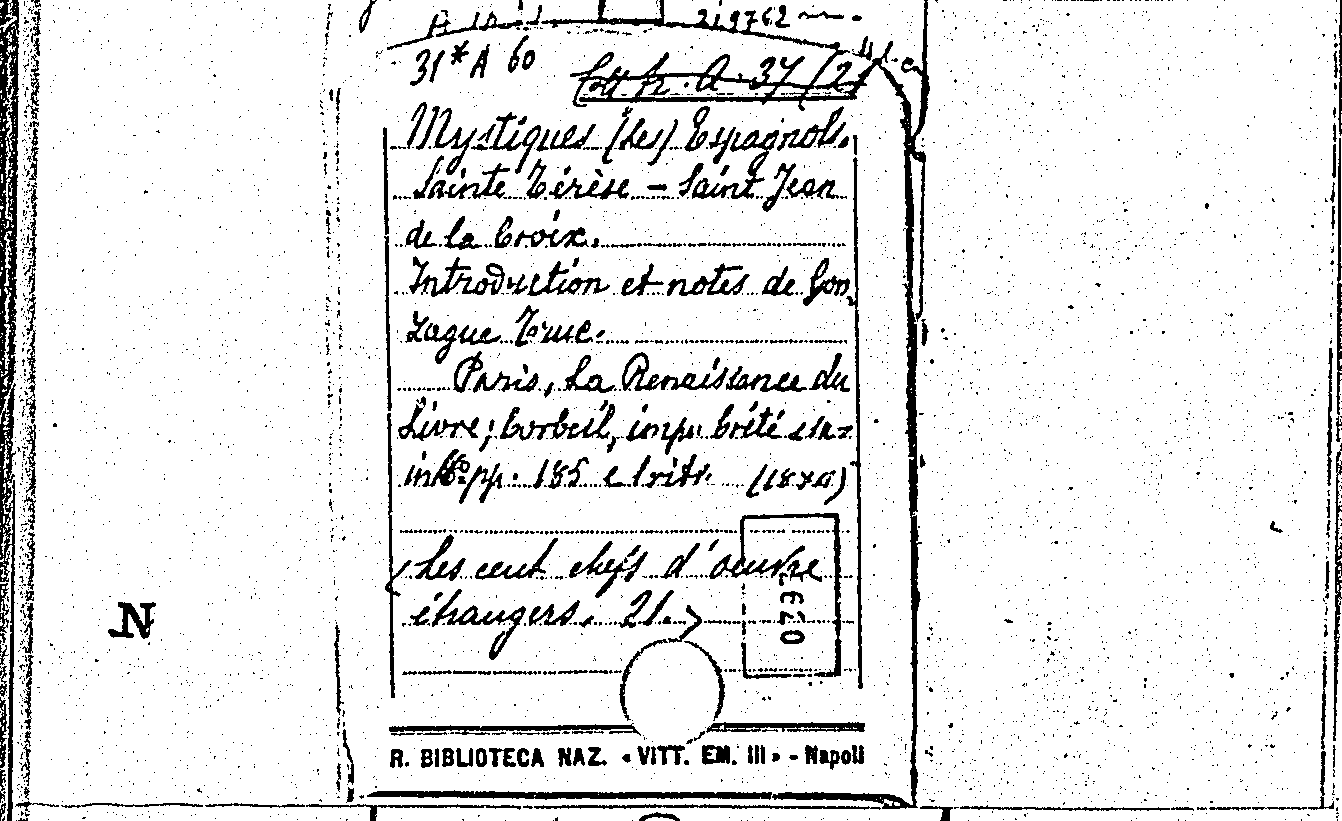 219762
31*A 60
Coll. fr. A. 37 /21
Mystiques (Les) Espagnols.
Sainte Térèse – Saint Jean
de la Croix.
Introduction et notes de Gon-
zague Truc.
Paris, La Renaissance du
Livre; Corbeil, impr. Crété s.a.
in 8° pp. 185 e ritr.
(Les cent chefs d'oeuvre
étrangers. 21.)
N
R. BIBLIOTECA NAZ. « VITT. EM. III » - Napoli